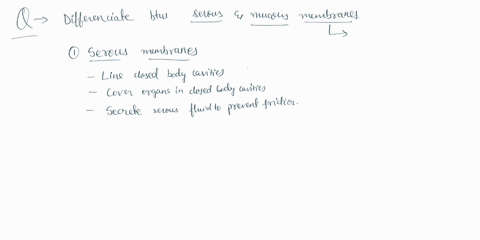 Q → Differentiate btw serous & mucous membranes
① Serous membranes
- Line closed body cavities
- Cover organs in closed body cavities
- Secrete serous fluid to prevent friction.